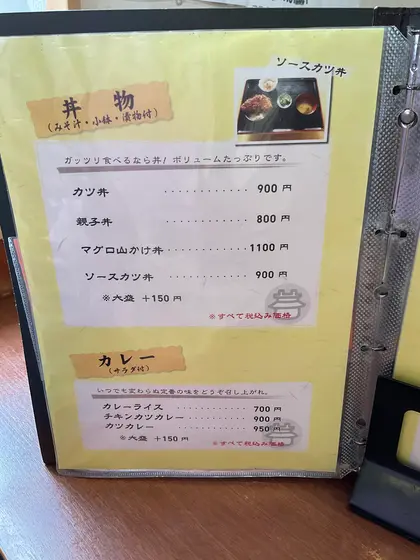 ソースカツ丼
丼物
(みそ汁・小鉢・漬物付)
ガッツリ食べるなら丼！ボリュームたっぷりです。
カツ丼 ・・・・・・・・・・・・ 900 円
親子丼 ・・・・・・・・・・・・ 800 円
マグロ山かけ丼 ・・・・・・・・・・・・ 1100 円
ソースカツ丼 ・・・・・・・・・・・・ 900 円
※大盛 +150 円
※すべて税込み価格
カレー
(サラダ付)
いつでも変わらぬ定番の味をどうぞ召し上がれ。
カレーライス ・・・・・・・・・・・・ 700 円
チキンカツカレー ・・・・・・・・・・・・ 900 円
カツカレー ・・・・・・・・・・・・ 950 円
※大盛 +150 円
※すべて税込み価格